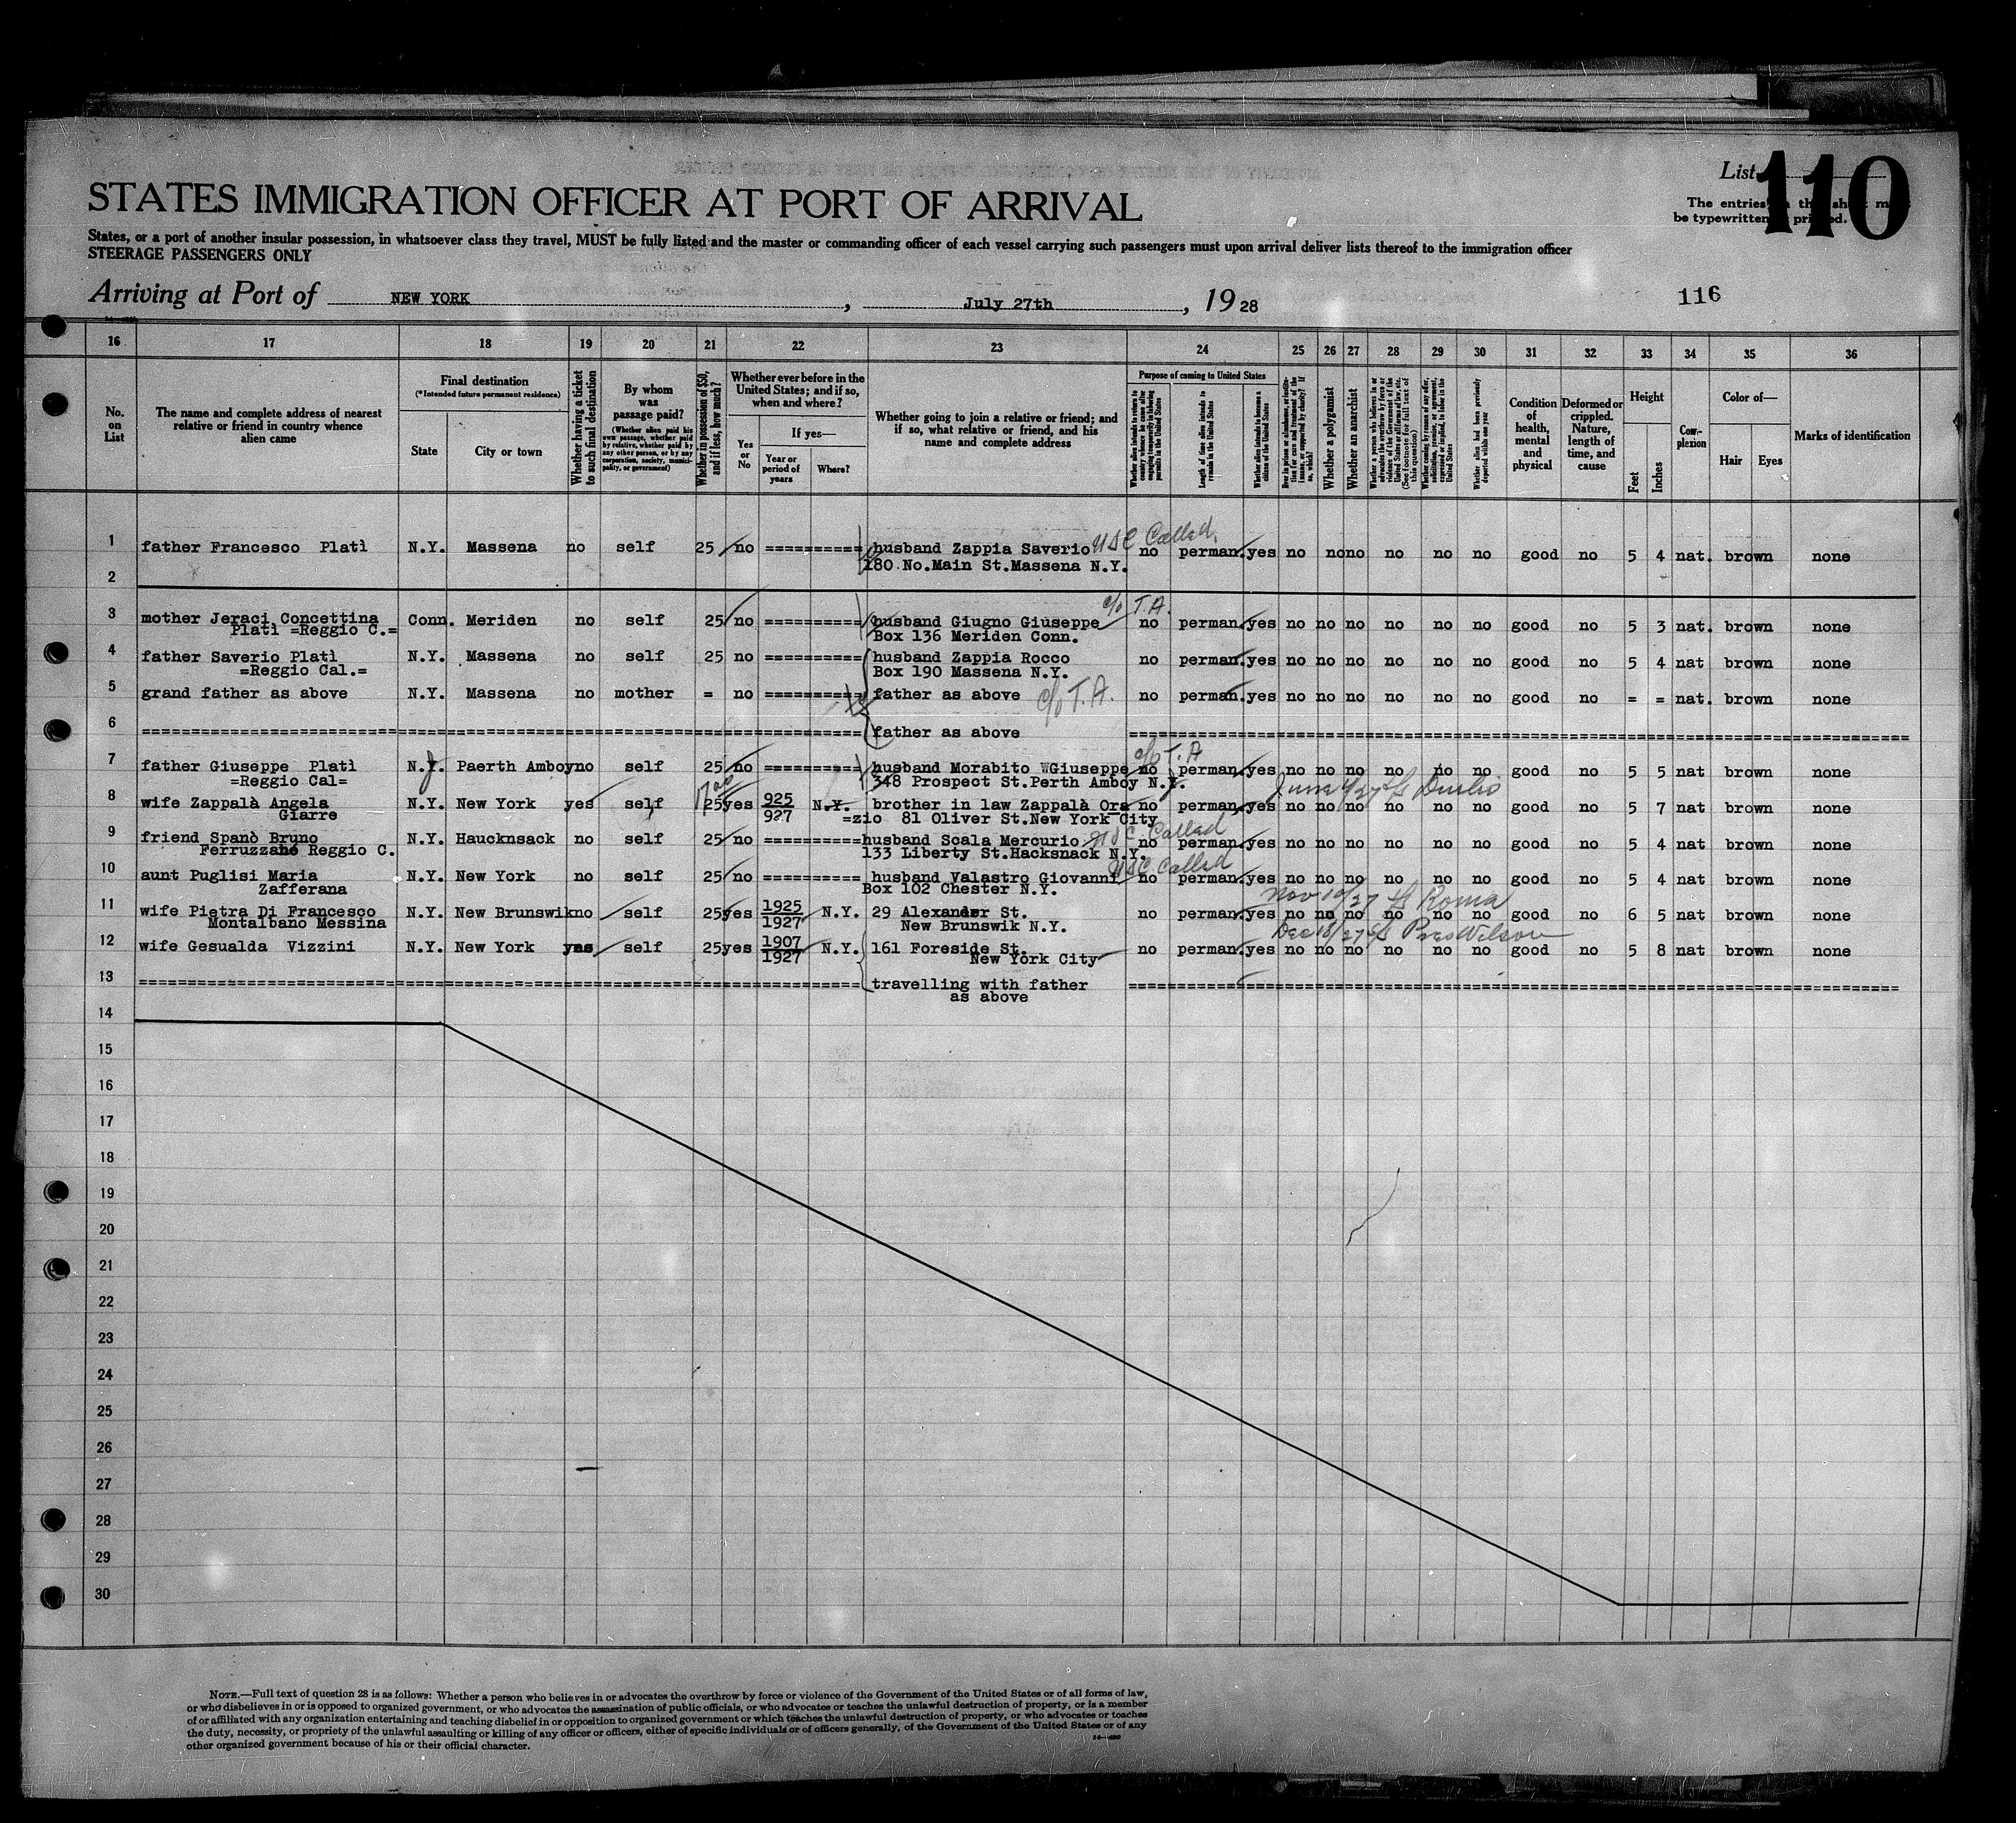 List 110
The entries
be typewritten
STATES IMMIGRATION OFFICER AT PORT OF ARRIVAL
States, or a port of another insular possession, in whatsoever class they travel, MUST be fully listed and the master or commanding officer of each vessel carrying such passengers must upon arrival deliver lists thereof to the immigration officer
STEERAGE PASSENGERS ONLY
Arriving at Port of NEW YORK, July 27th, 19 28
116
16 17 18 19 20 21 22 23 24 25 26 27 28 29 30 31 32 33 34 35 36
No. on List
The name and complete address of nearest relative or friend in country whence alien came
Final destination
(*Intended future permanent residence)
State
City or town
Whether having a ticket to such final destination
By whom was passage paid?
(Whether alien paid his own passage, whether paid by relative, whether paid by any other person, or by any corporation, society, municipality, or government)
Whether in possession of $50, and if less, how much?
Whether ever before in the United States; and if so, when and where?
Yes or No
If yes—
Year or period of years
Where?
Whether going to join a relative or friend; and if so, what relative or friend, and his name and complete address
Purpose of coming to United States
Length of time alien intends to remain in the United States
Whether alien intends to become a citizen of the United States
Whether a polygamist
Whether an anarchist
Whether alien had been previously deported within one year
Condition of health, mental and physical
Deformed or crippled. Nature, length of time, and cause
Height
Feet
Inches
Complexion
Color of—
Hair
Eyes
Marks of identification
1 father Francesco Platì N.Y. Massena no self 25 no ========== husband Zappia Saverio USC Called. no perman. yes no no no no no no good no 5 4 nat. brown none
180 No.Main St.Massena N.Y.
2
3 mother Jeraci Concettina Conn. Meriden no self 25 no ========== husband Giugno Giuseppe c/o T.A. no perman. yes no no no no no no good no 5 3 nat. brown none
Platì =Reggio C.= Box 136 Meriden Conn.
4 father Saverio Platì N.Y. Massena no self 25 no ========== husband Zappia Rocco no perman. yes no no no no no no good no 5 4 nat brown none
=Reggio Cal.= Box 190 Massena N.Y.
5 grand father as above N.Y. Massena no mother = no ========== father as above c/o T.A. no perman. yes no no no no no no good no = = nat. brown none
6 ========== father as above ==========
7 father Giuseppe Platì N.J. Paerth Amboy no self 25 no ========== husband Morabito WGiuseppe c/o T.A no perman. yes no no no no no no good no 5 5 nat brown none
=Reggio Cal= 348 Prospect St.Perth Amboy N.J.
8 wife Zappalà Angela N.Y. New York yes self 25 yes 925 927 N.Y. brother in law Zappalà Ora no perman. yes no no no no no no good no 5 7 nat brown none
Giarre =zio 81 Oliver St.New York City
June /27 SS Duilio
9 friend Spanò Bruno N.Y. Haucknsack no self 25 no ========== husband Scala Mercurio USC. Called no perman. yes no no no no no no good no 5 4 nat brown none
Ferruzzano Reggio C. 133 Liberty St.Hacksnack N.Y.
10 aunt Puglisi Maria N.Y. New York no self 25 no ========== husband Valastro Giovanni USC Called no perman. yes no no no no no no good no 5 4 nat brown none
Zafferana Box 102 Chester N.Y.
Nov 10/27 SS Roma
11 wife Pietra Di Francesco N.Y. New Brunswik no self 25 yes 1925 1927 N.Y. 29 Alexander St. no perman. yes no no no no no no good no 6 5 nat brown none
Montalbano Messina New Brunswik N.Y.
Dec 18/27 SS Pres Wilson
12 wife Gesualda Vizzini N.Y. New York yes self 25 yes 1907 1927 N.Y. 161 Foreside St. no perman. yes no no no no no no good no 5 8 nat brown none
New York City
13 ========== travelling with father ==========
as above
14
15
16
17
18
19
20
21
22
23
24
25
26
27
28
29
30
NOTE.—Full text of question 28 is as follows: Whether a person who believes in or advocates the overthrow by force or violence of the Government of the United States or of all forms of law,
or who disbelieves in or is opposed to organized government, or who advocates the assassination of public officials, or who advocates or teaches the unlawful destruction of property, or is a member
of or affiliated with any organization entertaining and teaching disbelief in or opposition to organized government or which teaches the unlawful destruction of property, or who advocates or teaches
the duty, necessity, or propriety of the unlawful assaulting or killing of any officer or officers, either of specific individuals or of officers generally, of the Government of the United States or of any
other organized government because of his or their official character.